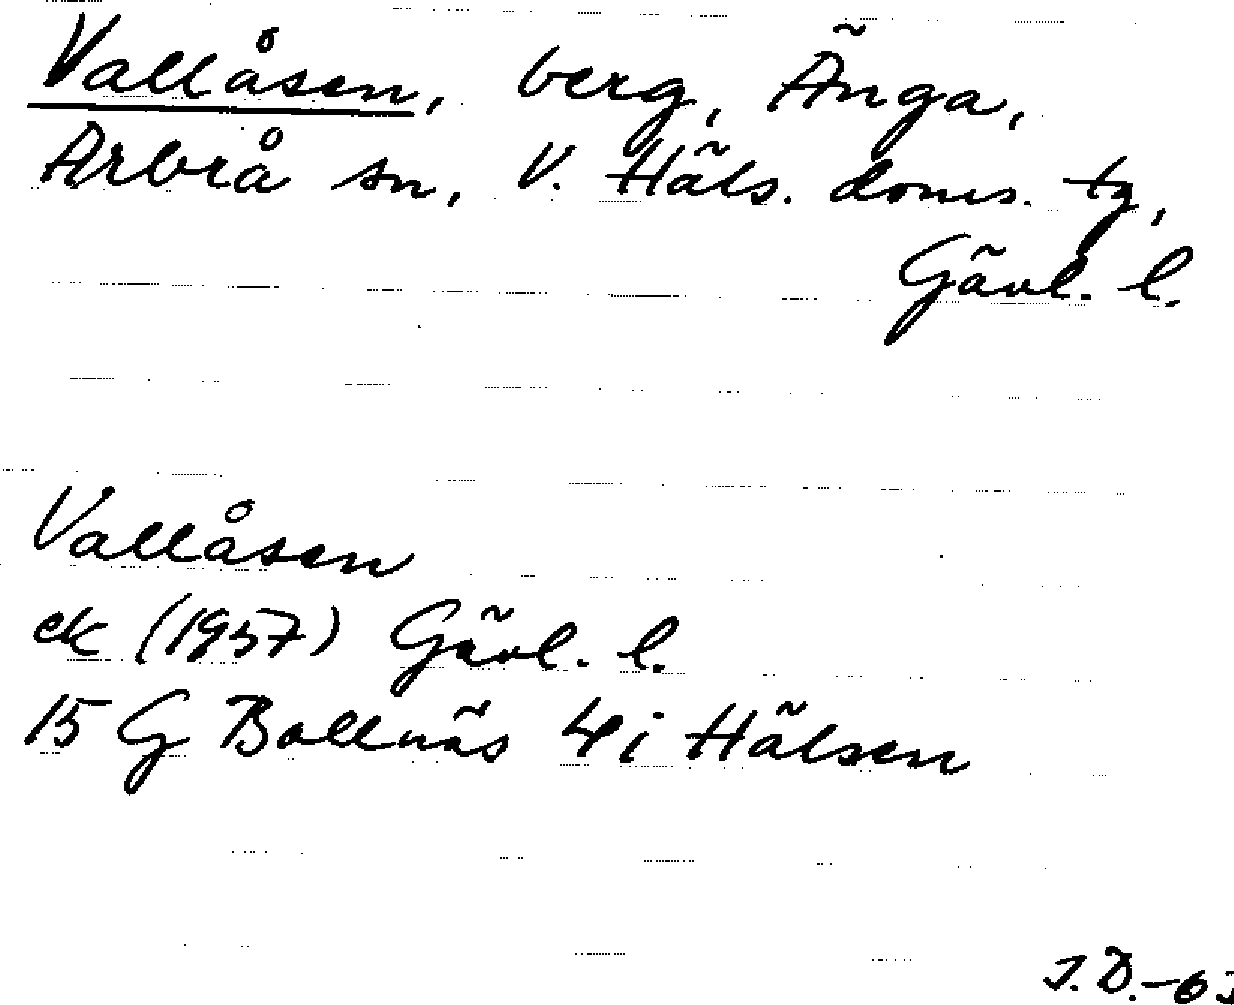 Vallåsen, berg, Änga,
Arbrå sn, V. Häls. doms. tg,
Gävl. l.
Vallåsen
ek (1957) Gävl. l.
15 G Bollnäs 4 i Hälsen
J.D.-6